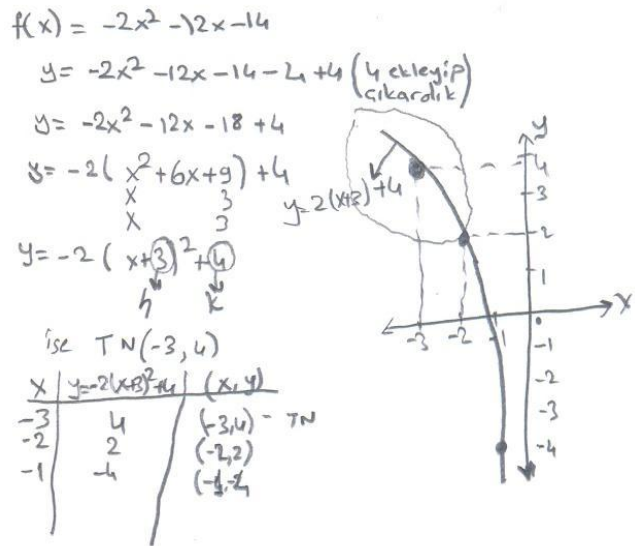 f(x) = -2x² -12x -14
y = -2x² -12x -14 -4 +4 (4 ekleyip çıkardık)
y = -2x² -12x -18 +4
y = -2( x² +6x +9 ) +4
x 3
x 3
y = -2 ( x+3 )² +4
h k
ise TN(-3, 4)
x y=-2(x+3)²+4 (x, y)
-3 4 (-3,4) - TN
-2 2 (-2,2)
-1 -4
y=2(x+3)+4
y
4
3
2
1
x
-3 -2 -1
-1
-2
-3
-4